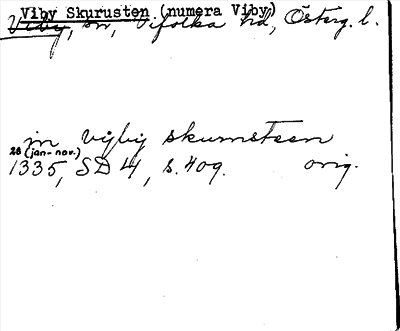 Viby Skurusten (numera Viby)
Viby, sn, Vifolka hd, Österg. l.
in vyby skurnsteen
28 (jan-nov.)
1335, SD 4, s. 409. orig.